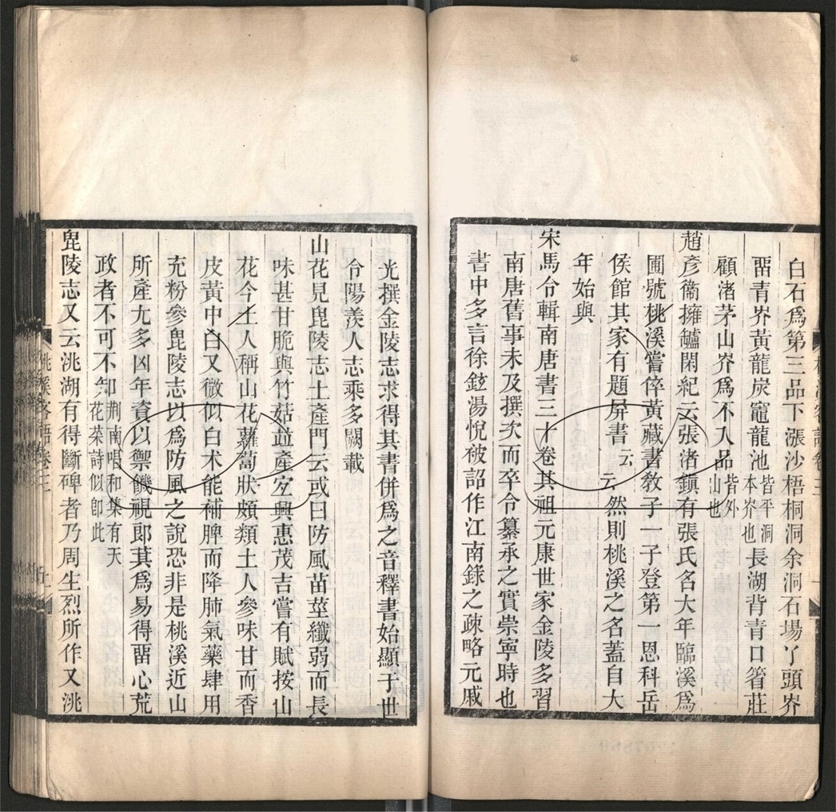 白石爲第三品下漲沙梧桐洞余洞石場丫頭岕
畱青岕黃龍炭竈龍池皆平洞本岕也長湖背青口箬莊
顧渚茅山岕爲不入品皆外山也
趙彥衞擁鑪閑紀云張渚鎮有張氏名大年臨溪爲
圃號桃溪嘗倅黃藏書教子一子登第一恩科岳
侯館其家有題屏書云云然則桃溪之名蓋自大
年始與
宋馬令輯南唐書三十卷其祖元康世家金陵多習
南唐舊事未及撰次而卒令纂承之實崇寧時也
書中多言徐鉉湯悅被詔作江南錄之疎略元戚
光撰金陵志求得其書併爲之音釋書始顯于世
令陽羨人志乘多闕載
山花見毘陵志土產門云或曰防風苗莖纖弱而長
味甚甘脆與竹菇竝產宜興惠茂吉嘗有賦按山
花今土人稱山花蘿蔔狀頗類土人參味甘而香
皮黃中白又微似白术能補脾而降肺氣藥肆用
充粉參毘陵志以爲防風之說恐非是桃溪近山
所產尤多凶年資以禦饑視郎萁爲易得畱心荒
政者不可不知荆南唱和集有天花菜詩似卽此
毘陵志又云洮湖有得斷碑者乃周生烈所作又洮
桃溪客語卷三